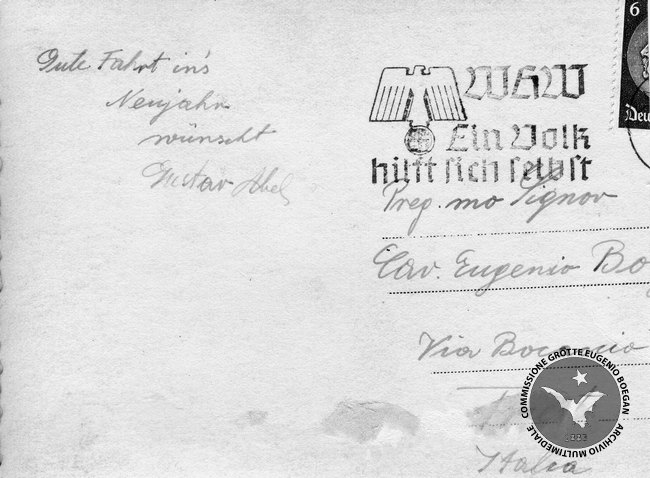 Gute Fahrt in's
Neujahr
wünscht
Gustav Abel
6
Deu
WHW
Ein Volk
hilft sich selbst
Preg.mo Signor
Cav. Eugenio Bo
Via Bocaccio
Italia
COMMISSIONE GROTTE EUGENIO BOEGAN
ARCHIVIO MULTIMEDIALE
1883